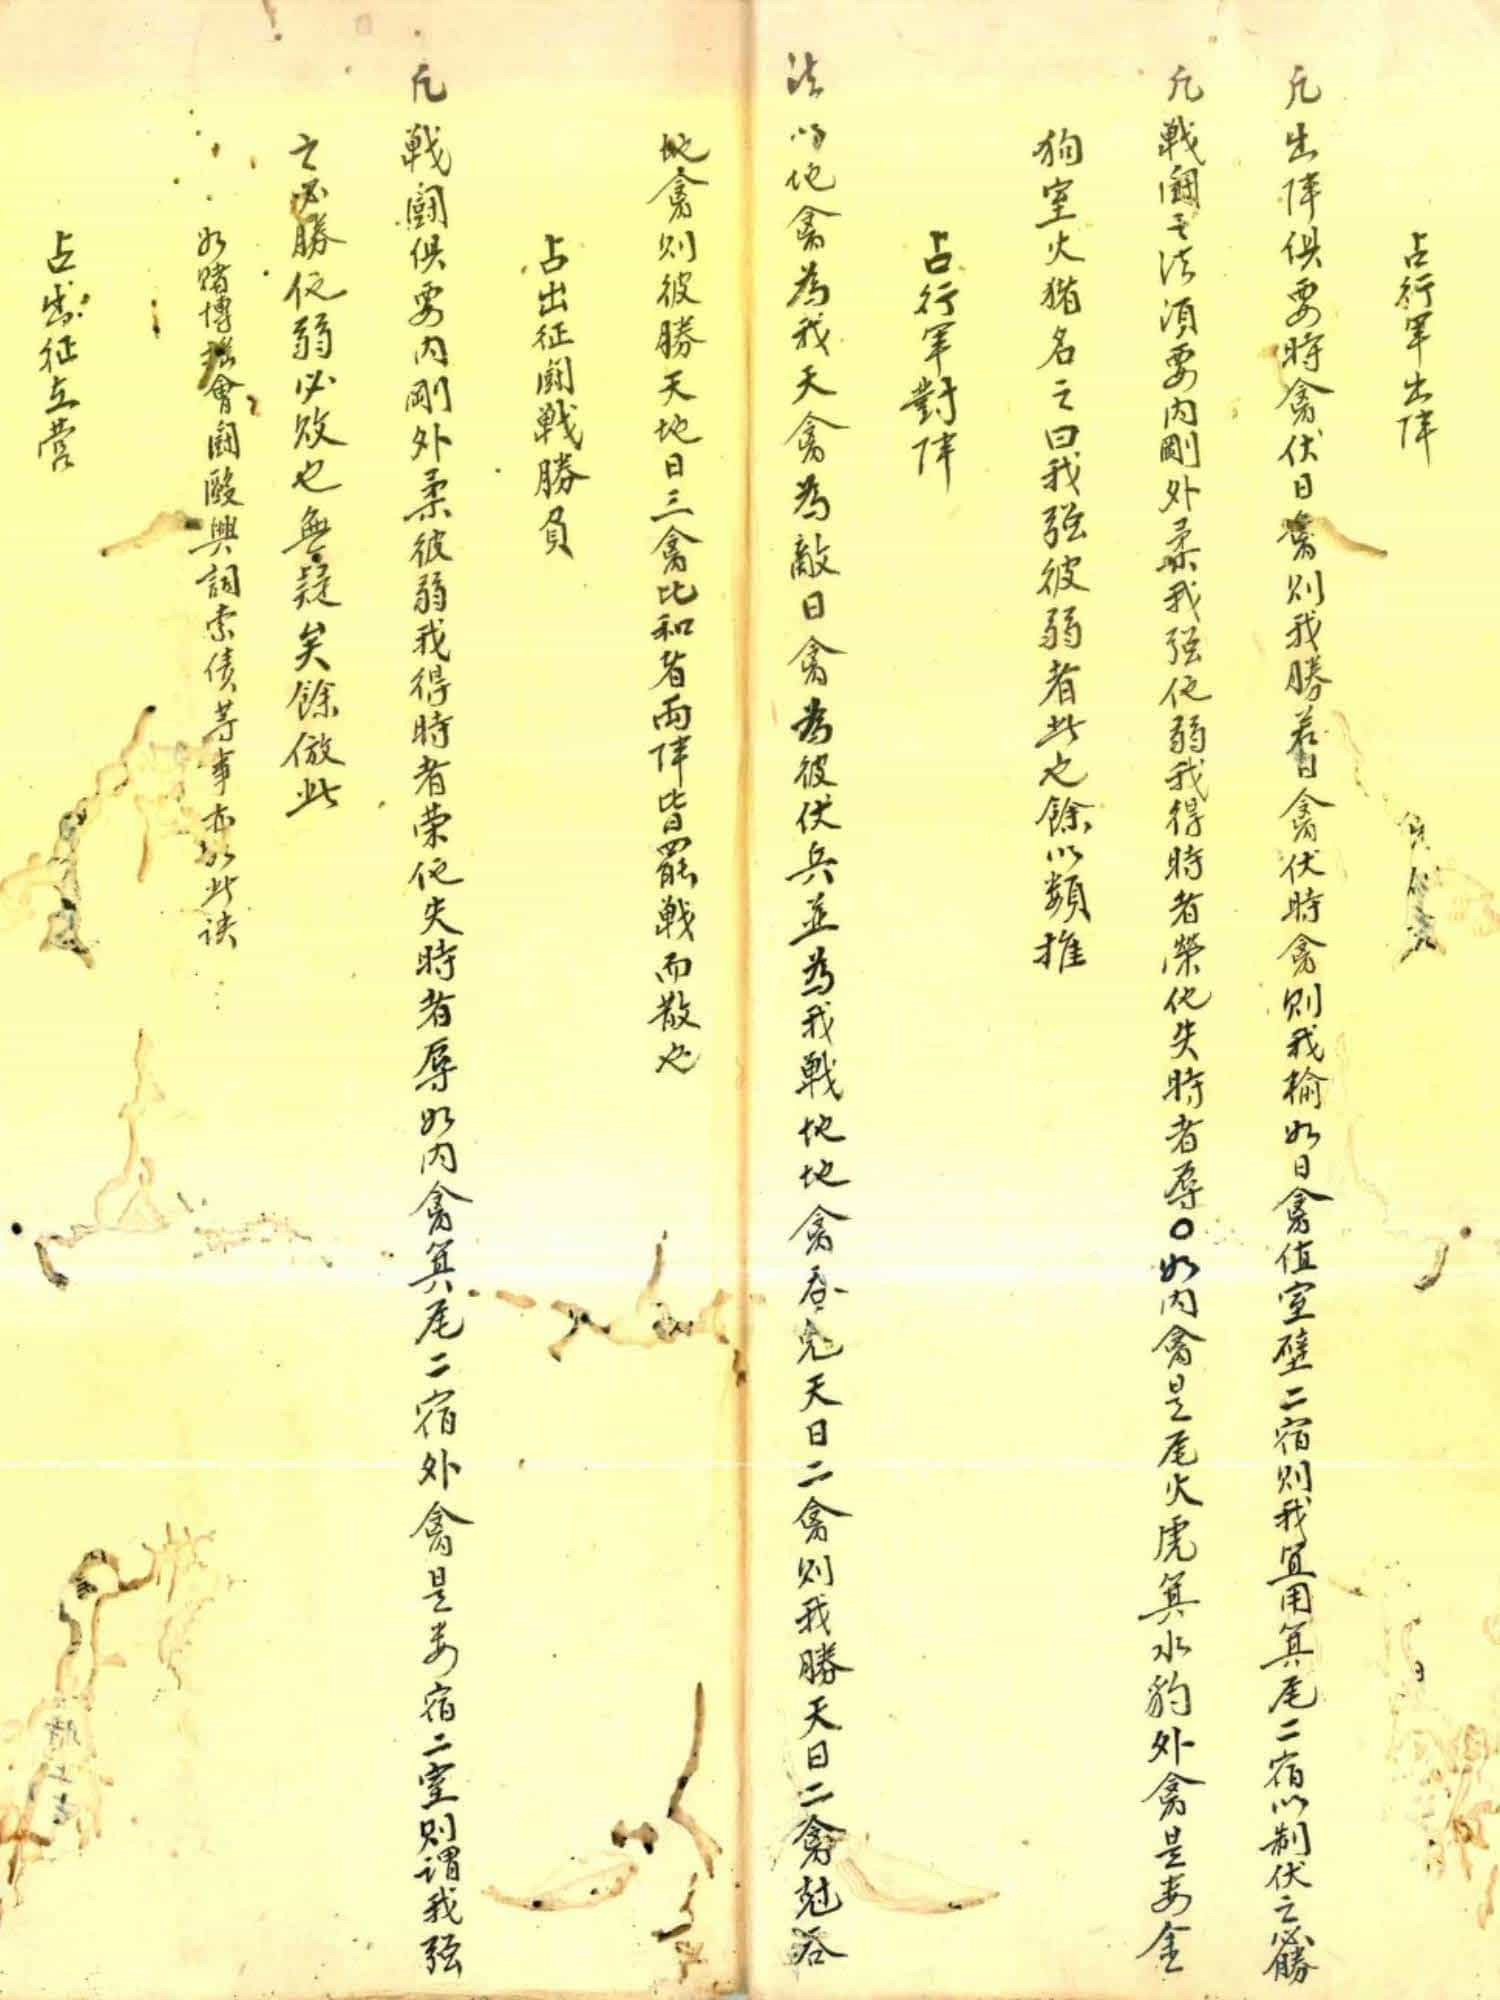 占行軍出陣
凡出陣俱要時禽伏日禽則我勝若日禽伏時禽則我榆如日禽值室壁二宿則我宜用箕尾二宿以制伏之必勝
凡戰鬪之法須要内剛外柔我强他弱我得時者榮他失時者辱○如内禽是尾火虎箕水豹外禽是婁金
狗室火猪名之曰我强彼弱者此也餘以類推
占行軍對陣
法以地禽為我天禽為敵日禽為彼伏兵並為我戰地地禽吞剋天日二禽則我勝天日二禽尅吞
地禽則彼勝天地日三禽比和者兩陣皆罷戰而散也
占出征鬪戰勝負
凡戰鬪俱要内剛外柔彼弱我得時者荣他失時者辱如内禽箕尾二宿外禽是婁宿二室則謂我强
之必勝他弱必敗也無疑矣餘倣此
如賭博摇會鬪毆興詞索债等事亦如此诀
占出征立营